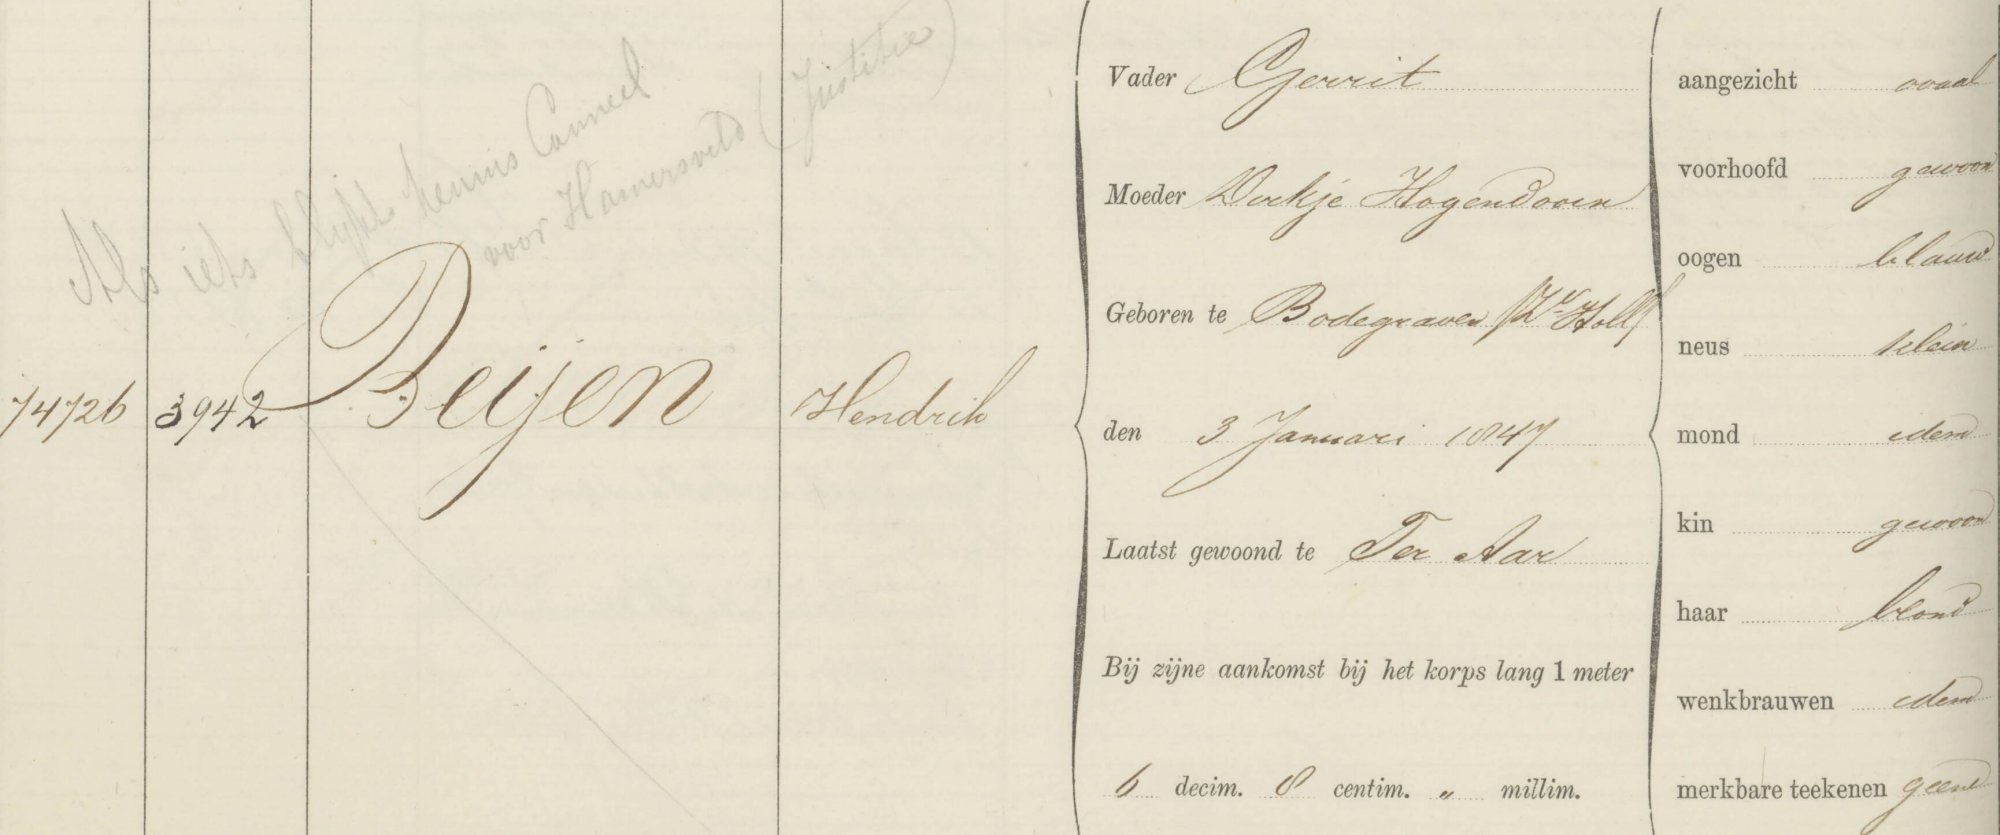 Als iets blijkt kennis
voor Hamersveld (Justitie)
74726 3942 Beijen Hendrik
Vader Gerrit
Moeder Dirkje Hogendoorn
Geboren te Bodegraven (Zd Holl)
den 3 Januari 1847
Laatst gewoond te Ter Aar
Bij zijne aankomst bij het korps lang 1 meter
6 decim. 8 centim. „ millim.
aangezicht ovaal
voorhoofd gewoon
oogen blauw
neus klein
mond idem
kin gewoon
haar blond
wenkbrauwen idem
merkbare teekenen geene